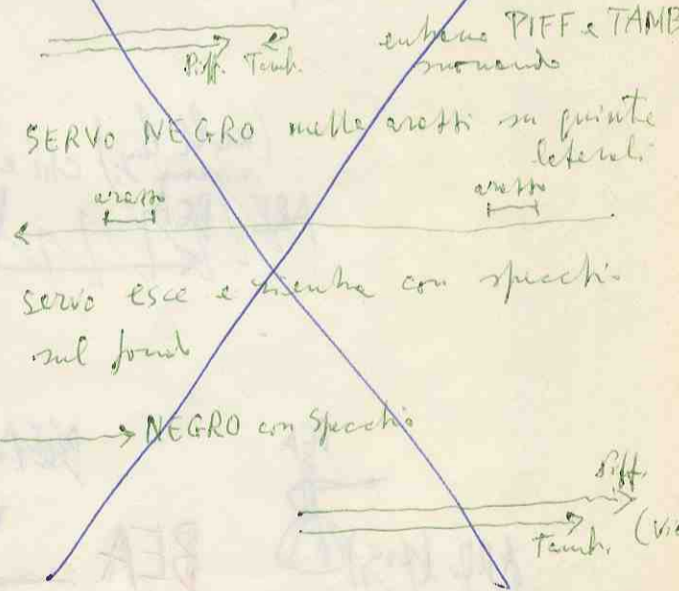 Piff. Tamb.
entrano PIFF e TAMB
suonando
SERVO NEGRO mette arazzi su quinte
laterali
arazzo arazzo
servo esce e rientra con specchio
sul fondo
NEGRO con Specchio
Piff.
Tamb.
BEA